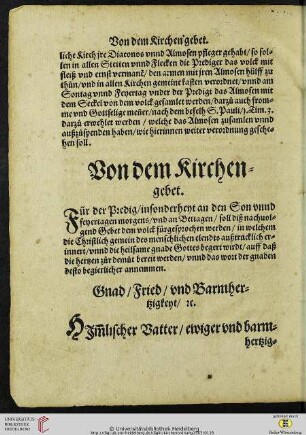 Von dem Kirchen gebet.
liche Kirch jre Diaconos vnnd Almosen pfleger gehabt / so sol-
len in allen Stetten vnnd Flecken die Prediger das volck mit
fleiß vnd ernst vermant / den armen mit jren Almosen hülff zu
thůn / vnd in allen Kirchen gemeine kasten verordnet / vnnd am
Sontag vnnd Feyertag vnder der Predigt das Almosen mit
dem Seckel von dem volck gesamlet werden / darzů auch from-
me vnd Gottselige meñer / nach dem befelh S. Pauli / 1. Tim. 3.
darzů erwehlet werden / welche das Almosen zusamlen vnnd
auffzůspenden haben / wie hierinnen weiter verordnung gesche-
hen soll.
Von dem Kirchen-
gebet.
Für der Predig / insonderheyt an den Son vnnd
Feyertagen morgens / vnd an Bettagen / soll diß nachuol-
gend Gebet dem volck fürgesprochen werden / in welchem
die Christlich gemein des menschlichen elendts außtrücklich er-
innert / vnnd die heilsame gnade Gottes begert wirdt / auff daß
die hertzen zůr demůt bereit werden / vnnd das wort der gnaden
desto begierlicher annemmen.
Gnad / Fried / vnd Barmher-
tzigkeyt / ꝛc.
HJm̃lischer Vatter / ewiger vnd barm-
hertzig-
UNIVERSITÄTS-
BIBLIOTHEK
HEIDELBERG
© Universitätsbibliothek Heidelberg